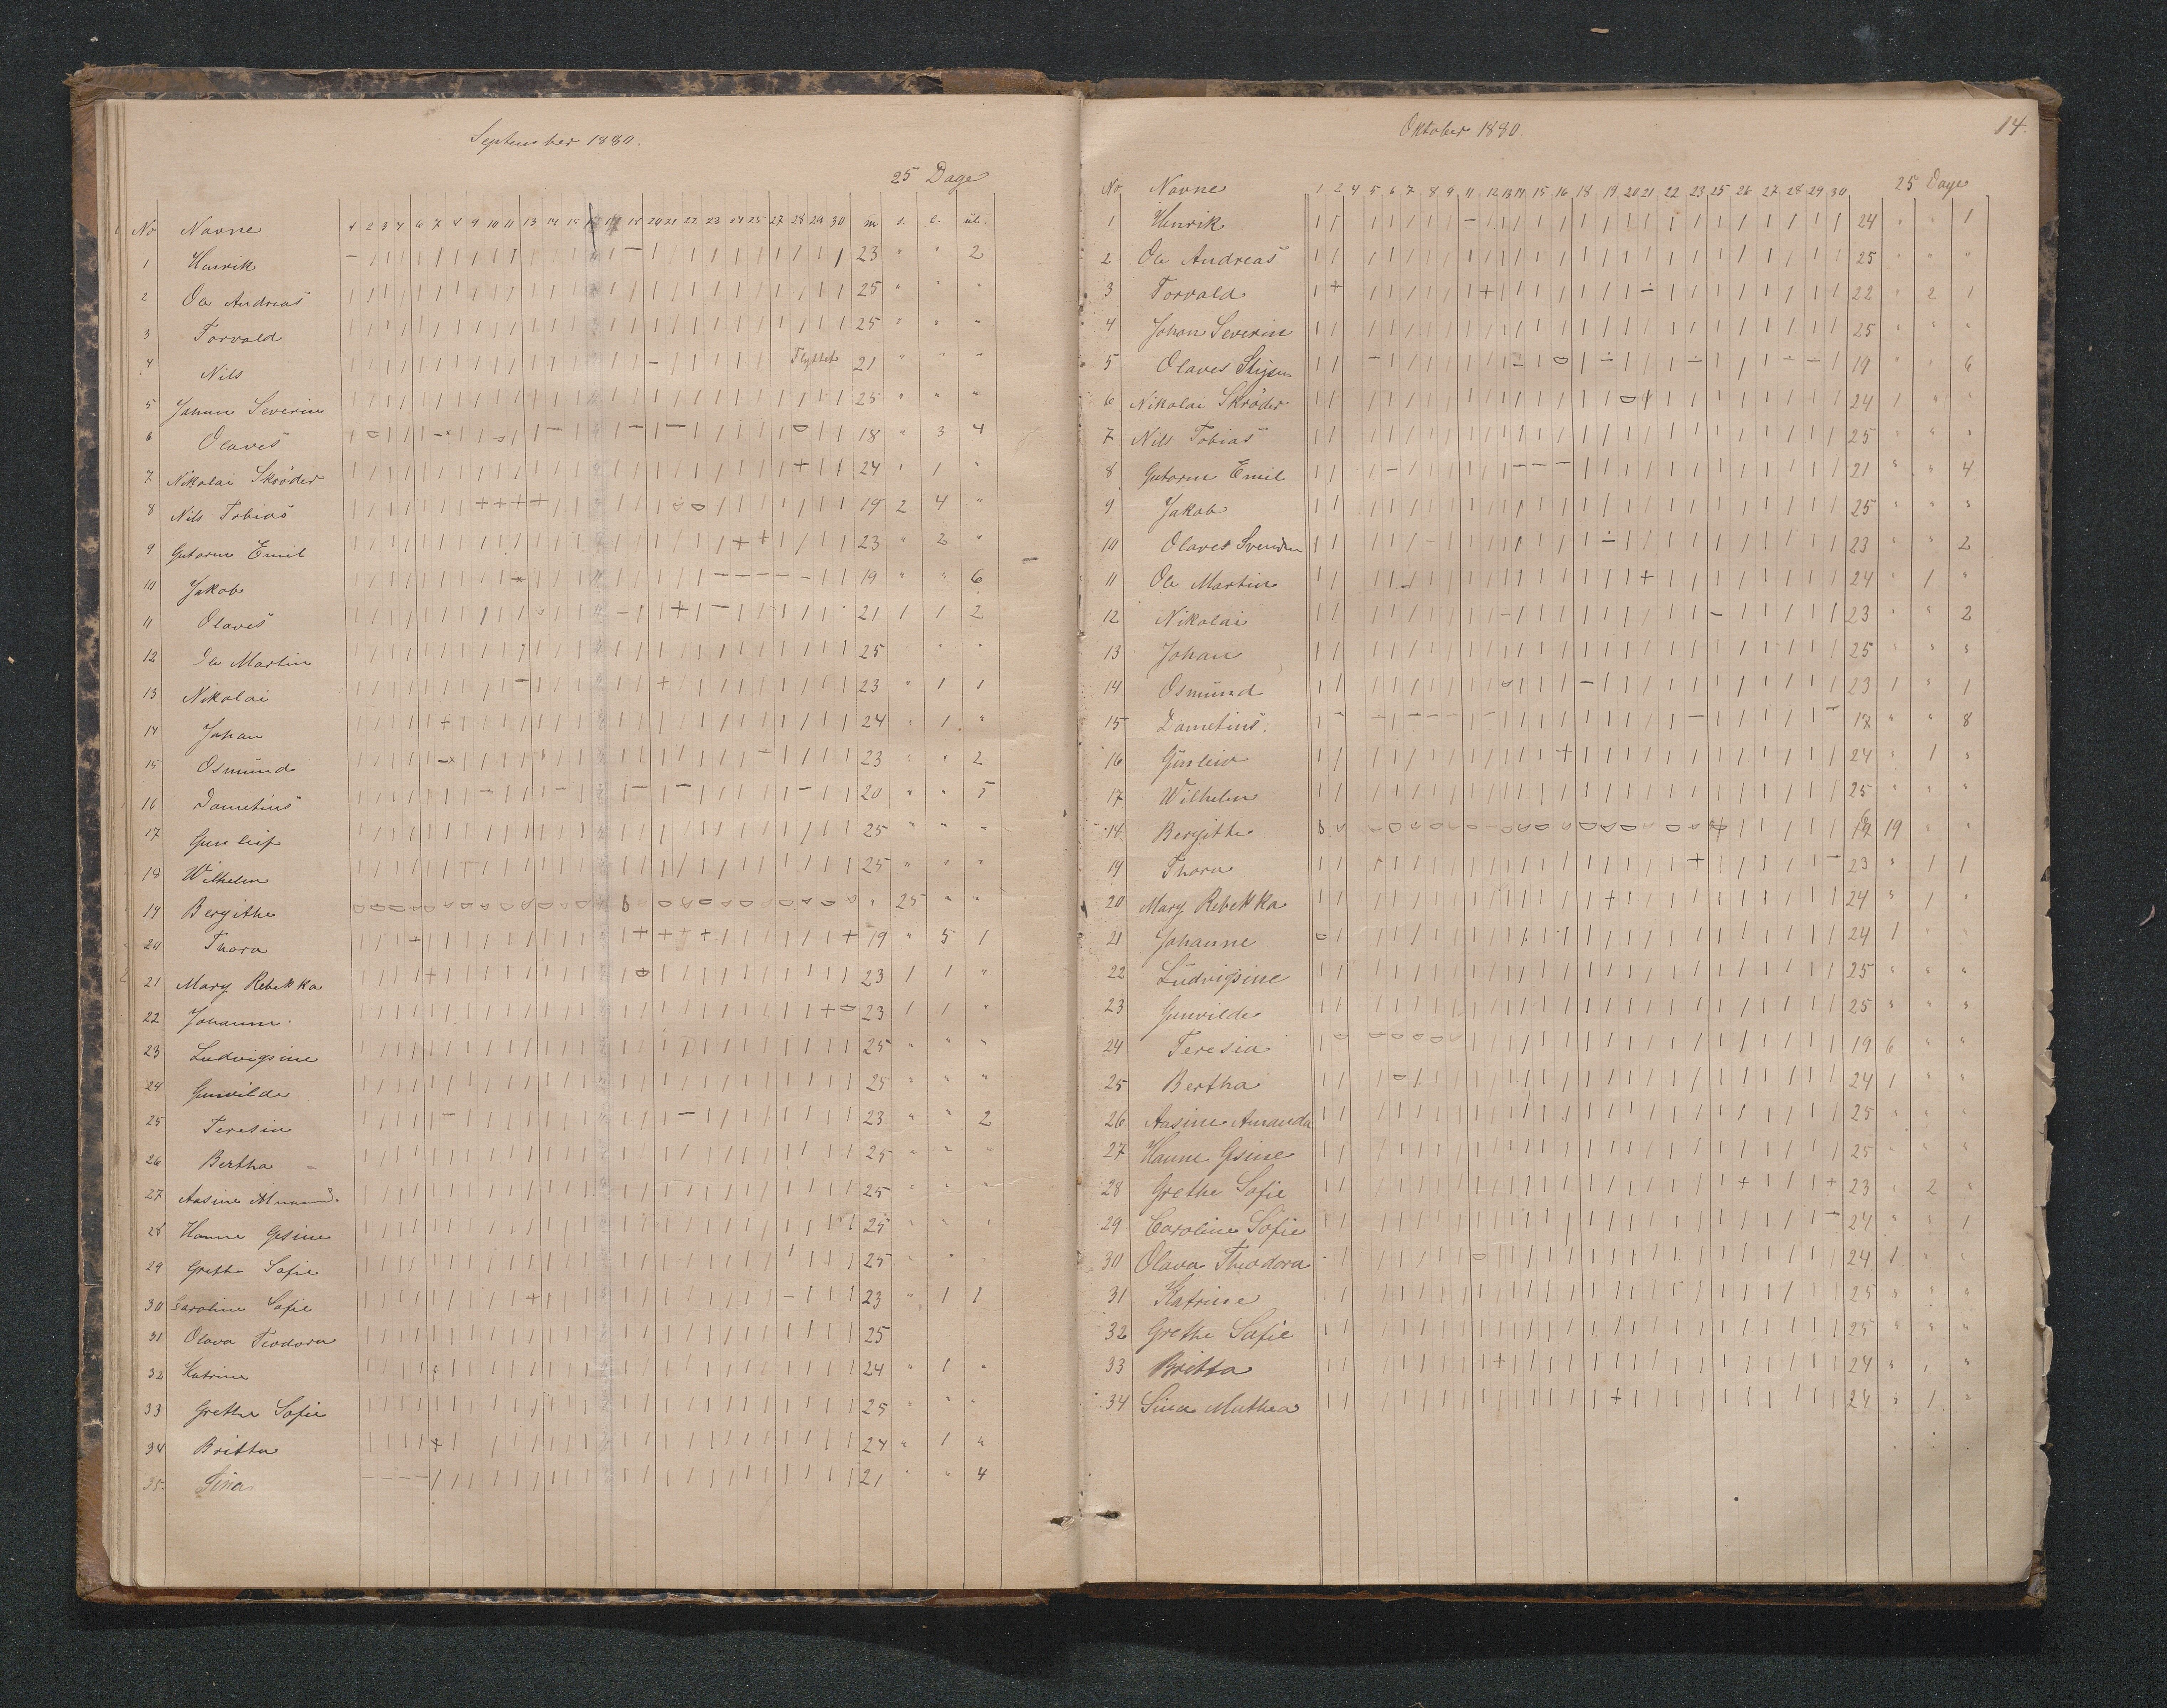 September 1880.
25 Dage
No Navne 1 2 3 4 6 7 8 9 10 11 13 14 15 18 20 21 22 23 24 25 27 28 29 30 m s. l. ul.
1 Henrik 23 " " 2
2 Ole Andreas 25 " " "
3 Torvald 25 " " "
4 Nils Flyttet 21 " " "
5 Johan Severin 25 " " "
6 Olaves 18 " 3 4
7 Nikolai Skrøder 24 " 1 "
8 Nils Tobias 19 2 4 "
9 Gutorm Emil 23 " 2 "
10 Jakob 19 " " 6
11 Olaves 21 1 1 2
12 Ole Martin 25 " "
13 Nikolai 23 " 1 1
14 Johan 24 " 1 "
15 Osmund 23 " " 2
16 Dometius 20 " " 5
17 Gunleif 25 " " "
18 Wilhelm 25 " " "
19 Bergithe " 25 " "
20 Thora 19 " 5 1
21 Mary Rebekka 23 1 1 "
22 Johanne 23 1 1 "
23 Ludvigsine 25 " " "
24 Gunvilde 25 " " "
25 Teresia 23 " " 2
26 Bertha 25 " "
27 Aasine Amand. 25 " " "
28 Hanne Gesine 25 " " "
29 Grethe Sofie 25 " " "
30 Caroline Sofie 23 " 1 1
31 Olava Teodora 25
32 Katrine 24 " 1 "
33 Grethe Sofie 25 " " "
34 Britta 24 " 1 "
35. Sina 21 " " 4
14.
Oktober 1880.
25 Dage
No Navne 1 2 4 5 6 7 8 9 11 12 13 14 15 16 18 19 20 21 22 23 25 26 27 28 29 30
1 Henrik 24 " " 1
2 Ole Andreas 25 " " "
3 Torvald 22 " 2 1
4 Johan Severin 25 " " "
5 Olaves 19 " " 6
6 Nikolai Skrøder 24 1 " "
7 Nils Tobias 25 " " "
8 Gutorm Emil 21 " " 4
9 Jakob 25 " " "
10 Olaves Svendsen 23 " " 2
11 Ole Martin 24 " 1 "
12 Nikolai 23 " " 2
13 Johan 25 " " "
14 Osmund 23 1 " 1
15 Dometius. 17 " " 8
16 Gunleiv 24 " 1 "
17 Wilhelm 25 " " "
18. Bergithe 19 " "
19 Thora 23 " 1 1
20 Mary Rebekka 24 " 1 "
21 Johanne 24 1 " "
22 Ludvigsine 25 " " "
23 Gunvilde 25 " " "
24 Teresia 19 6 " "
25 Bertha 24 1 " "
26 Aasine Amanda 25 " " "
27 Hanne Gesine 25 " " "
28 Grethe Sofie 23 " 2 "
29 Caroline Sofie 24 " " 1
30 Olava Theodora 24 1 " "
31 Katrine 25 " " "
32 Grethe Sofie 25 " " "
33 Britta 24 " 1 "
34 Sina Mathea 24 " 1 "